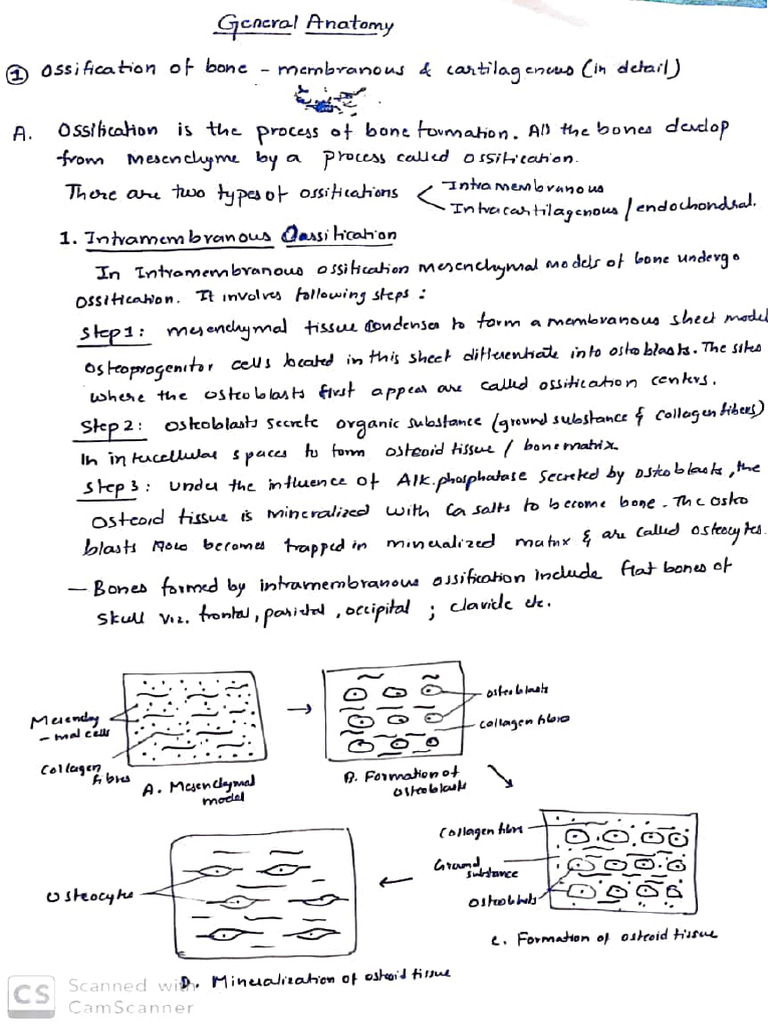 General Anatomy
① Ossification of bone - membranous & cartilagenous (in detail)
A. Ossification is the process of bone formation. All the bones develop
from mesenchyme by a process called ossification.
There are two types of ossifications < Intramembranous
Intracartilagenous / endochondral.
1. Intramembranous Ossification
In Intramembranous ossification mesenchymal models of bone undergo
ossification. It involves following steps :
Step 1 : mesenchymal tissue condenses to form a membranous sheet model
Osteoprogenitor cells located in this sheet differentiate into ostoblasts. The sites
where the osteoblasts first appear are called ossification centers.
Step 2 : Osteoblasts secrete organic substance (ground substance & collagen fibers)
In intercellular spaces to form osteoid tissue / bone matrix
Step 3 : under the influence of Alk. phosphatase secreted by ostoblasts, the
osteoid tissue is mineralized with Ca salts to become bone. The osto
blasts now becomes trapped in mineralized matrix & are called osteocytes.
- Bones formed by intramembranous ossification include flat bones of
skull viz. frontal, parietal, occipital ; clavicle etc.
Mesenchy
-mal cells
Collagen
fibres
A. Mesenchymal
model
→
osteoblasts
collagen fibre
B. Formation of
osteoblasts
Collagen fibre
Ground
substance
Osteoblasts
C. Formation of osteoid tissue
←
Osteocyte
D. Mineralization of osteoid tissue
CS Scanned with
CamScanner